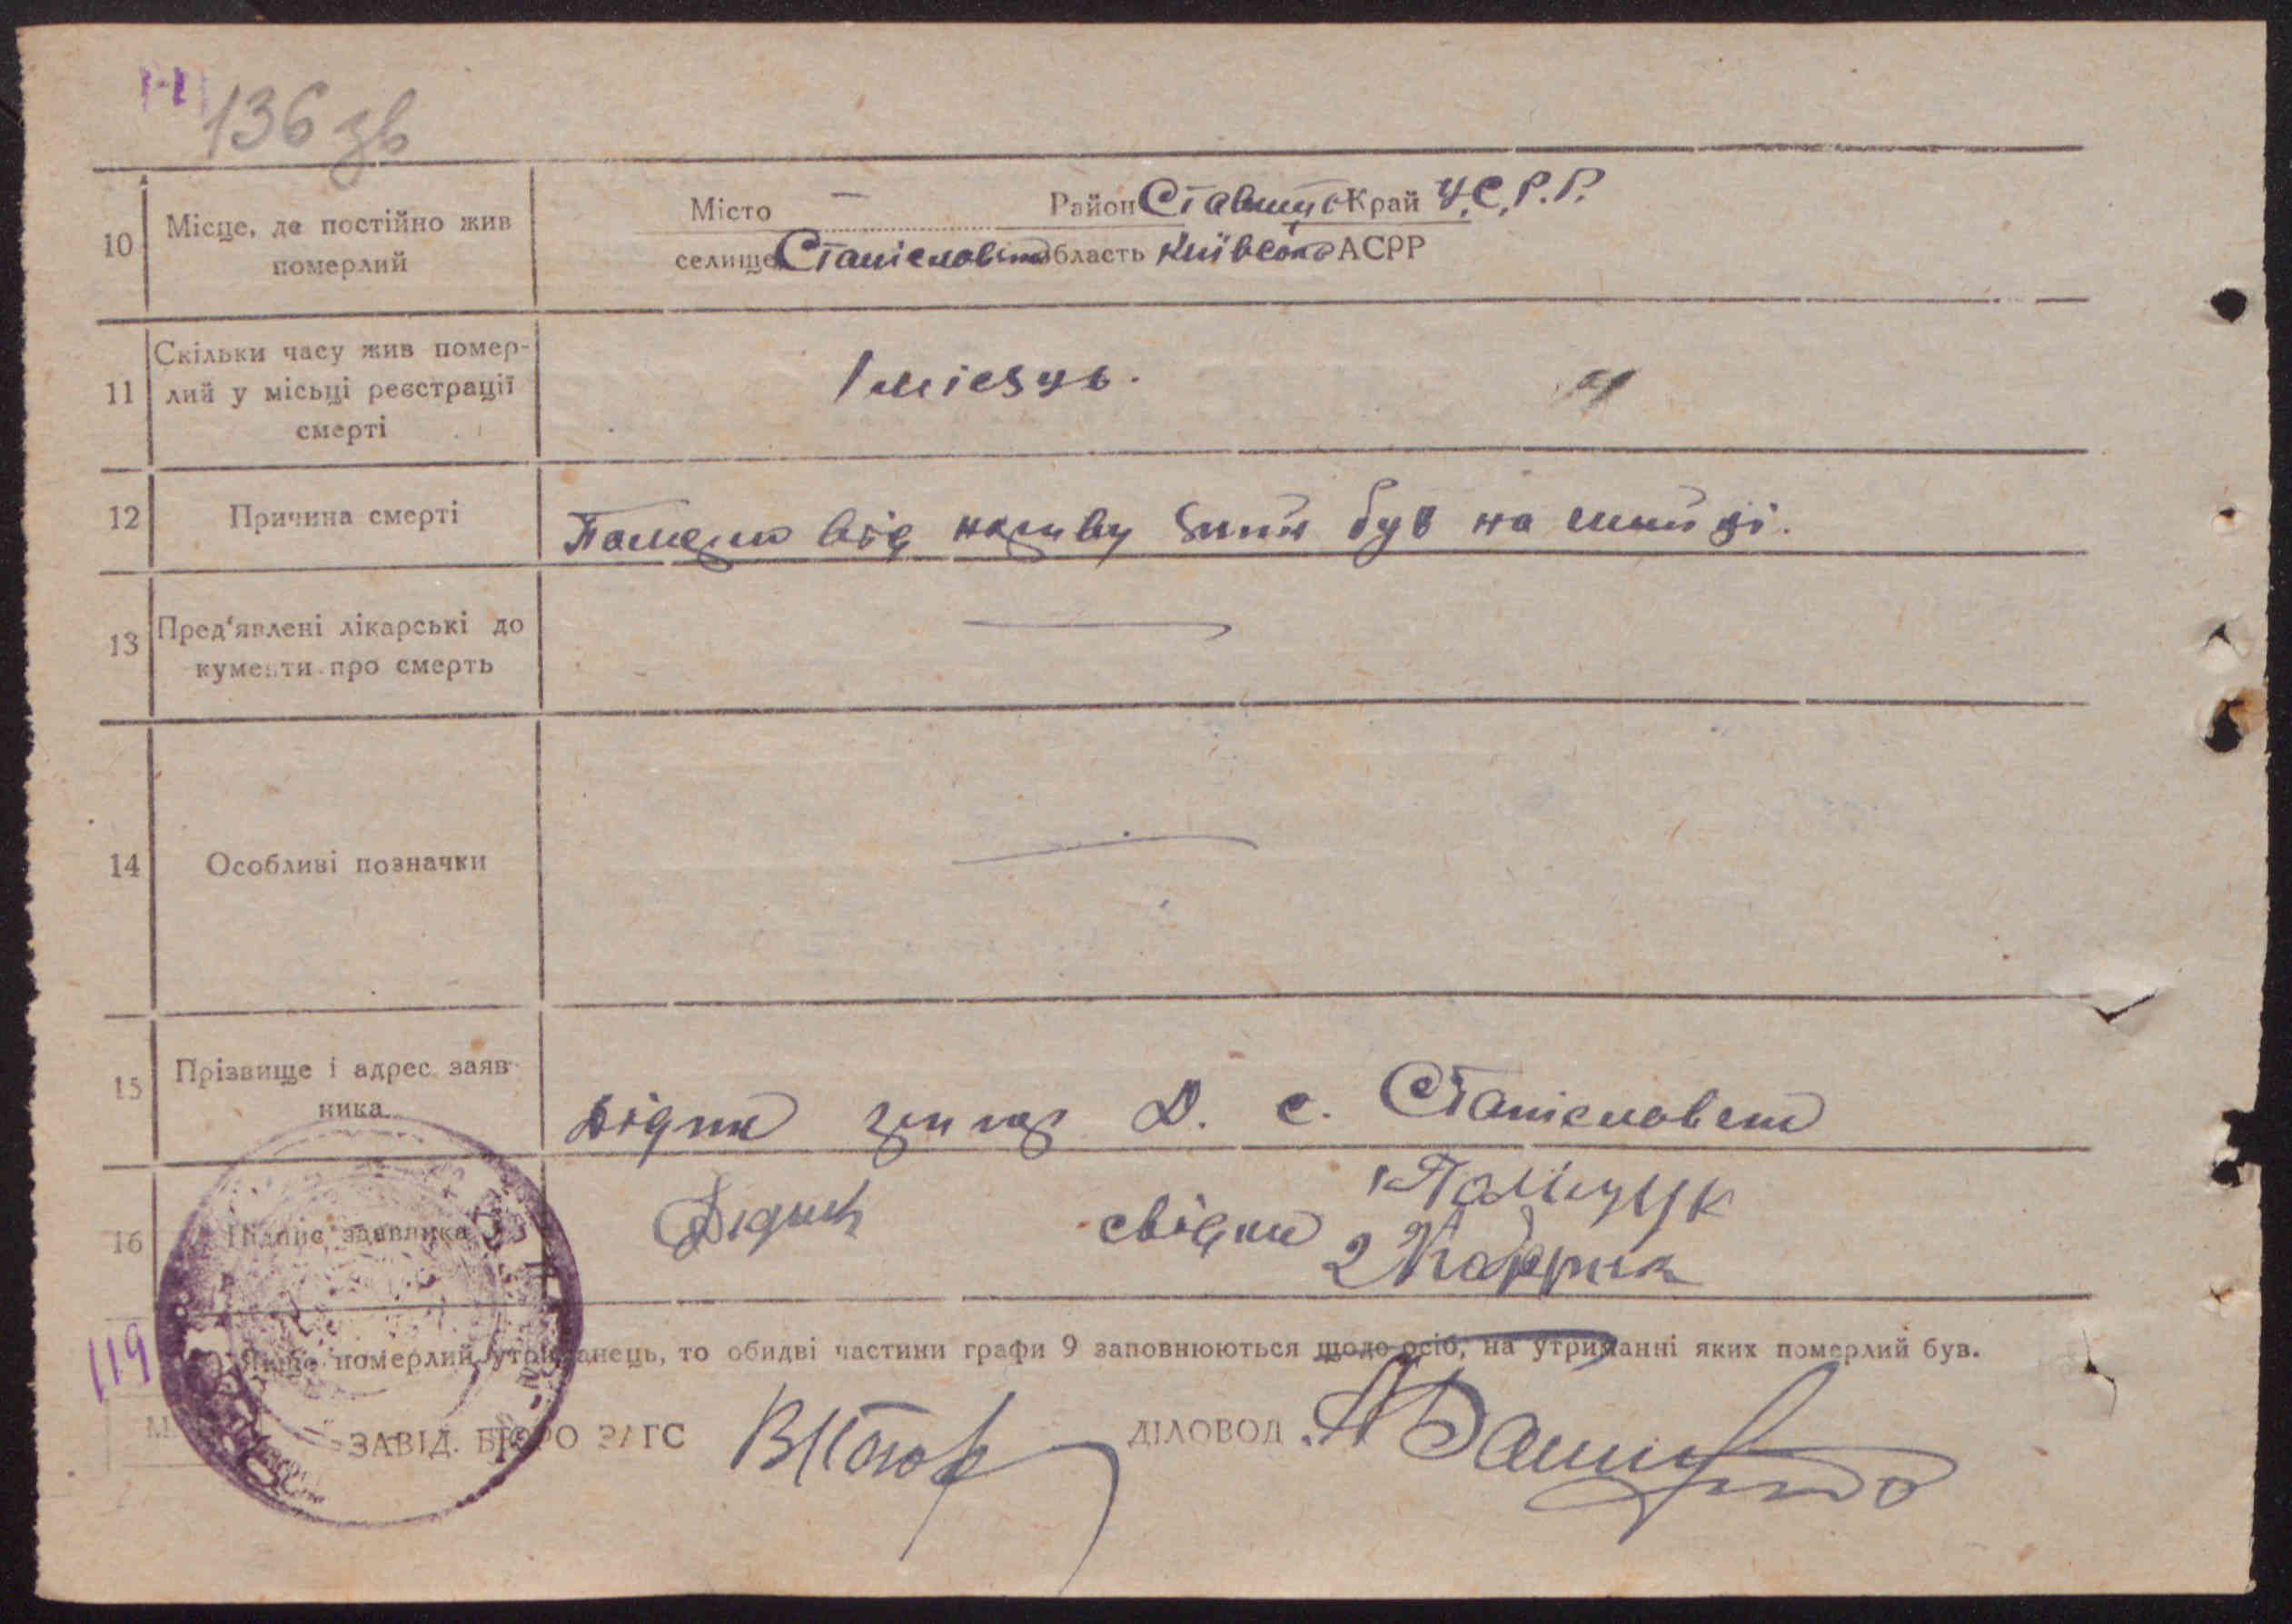 136 зв
10 Місце, де постійно жив померлий
Місто — Район Ставищ Край У.С.Р.Р.
селище Станіславка область Київська АСРР
11 Скільки часу жив помер-
лий у місьці реєстрації
смерті
1 місяць.
12 Причина смерті
Помер від нариву який був на шийці.
13 Пред'явлені лікарські до
кументи про смерть
—
14 Особливі позначки
—
15 Прізвище і адрес заяв-
ника
Дідик Д. с. Станіславка
16 Підпис заявника
Дідик свідки 1 Поліщук
2
119
Якщо померлий утриманець, то обидві частини графи 9 заповнюються щодо осіб, на утриманні яких померлий був.
ЗАВІД. БЮРО ЗАГС ДІЛОВОД